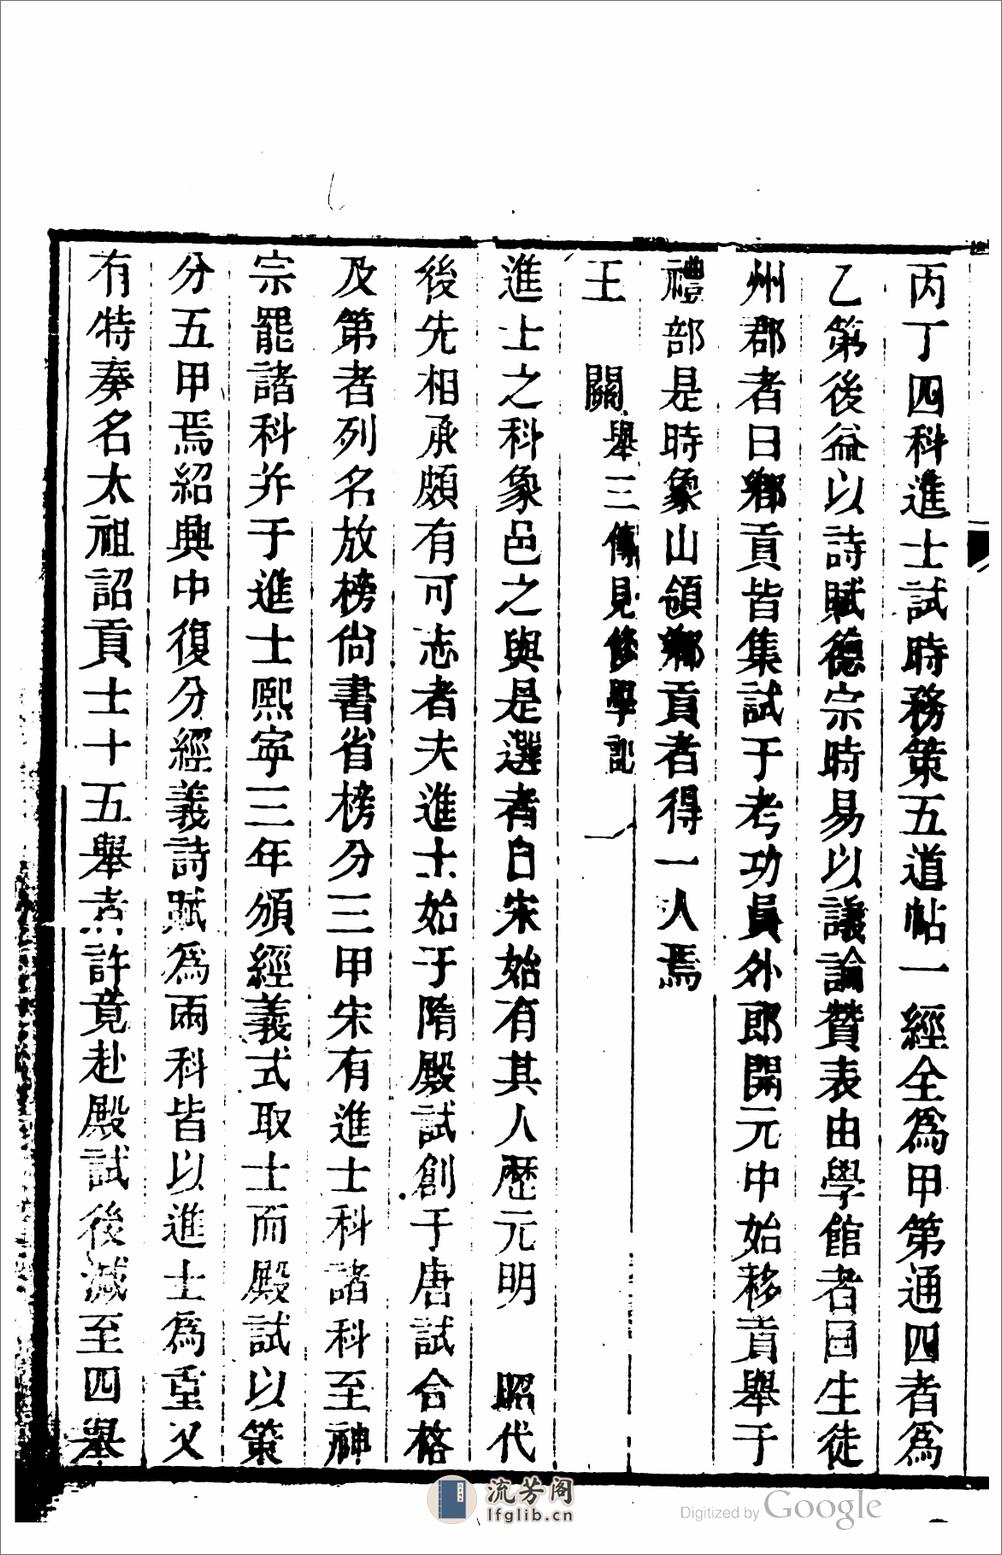 丙丁四科進士試時務策五道帖一經全爲甲第通四者爲
乙第後益以詩賦德宗時易以議論贊表由學館者曰生徒
州郡者曰鄉貢皆集試于考功員外郎開元中始移貢舉于
禮部是時象山領鄉貢者得一人焉
王　關舉三傳見修學記
進士之科象邑之與是選者自宋始有其人歷元明　昭代
後先相承頗有可志者夫進士始于隋殿試創于唐試合格
及第者列名放榜尙書省榜分三甲宋有進士科諸科至神
宗罷諸科并于進士熙寧三年頒經義式取士而殿試以策
分五甲焉紹興中復分經義詩賦爲兩科皆以進士爲重又
有特奏名太祖詔貢士十五舉者許竟赴殿試後減至四舉
流芳阁
lfglib.cn
Digitized by Google